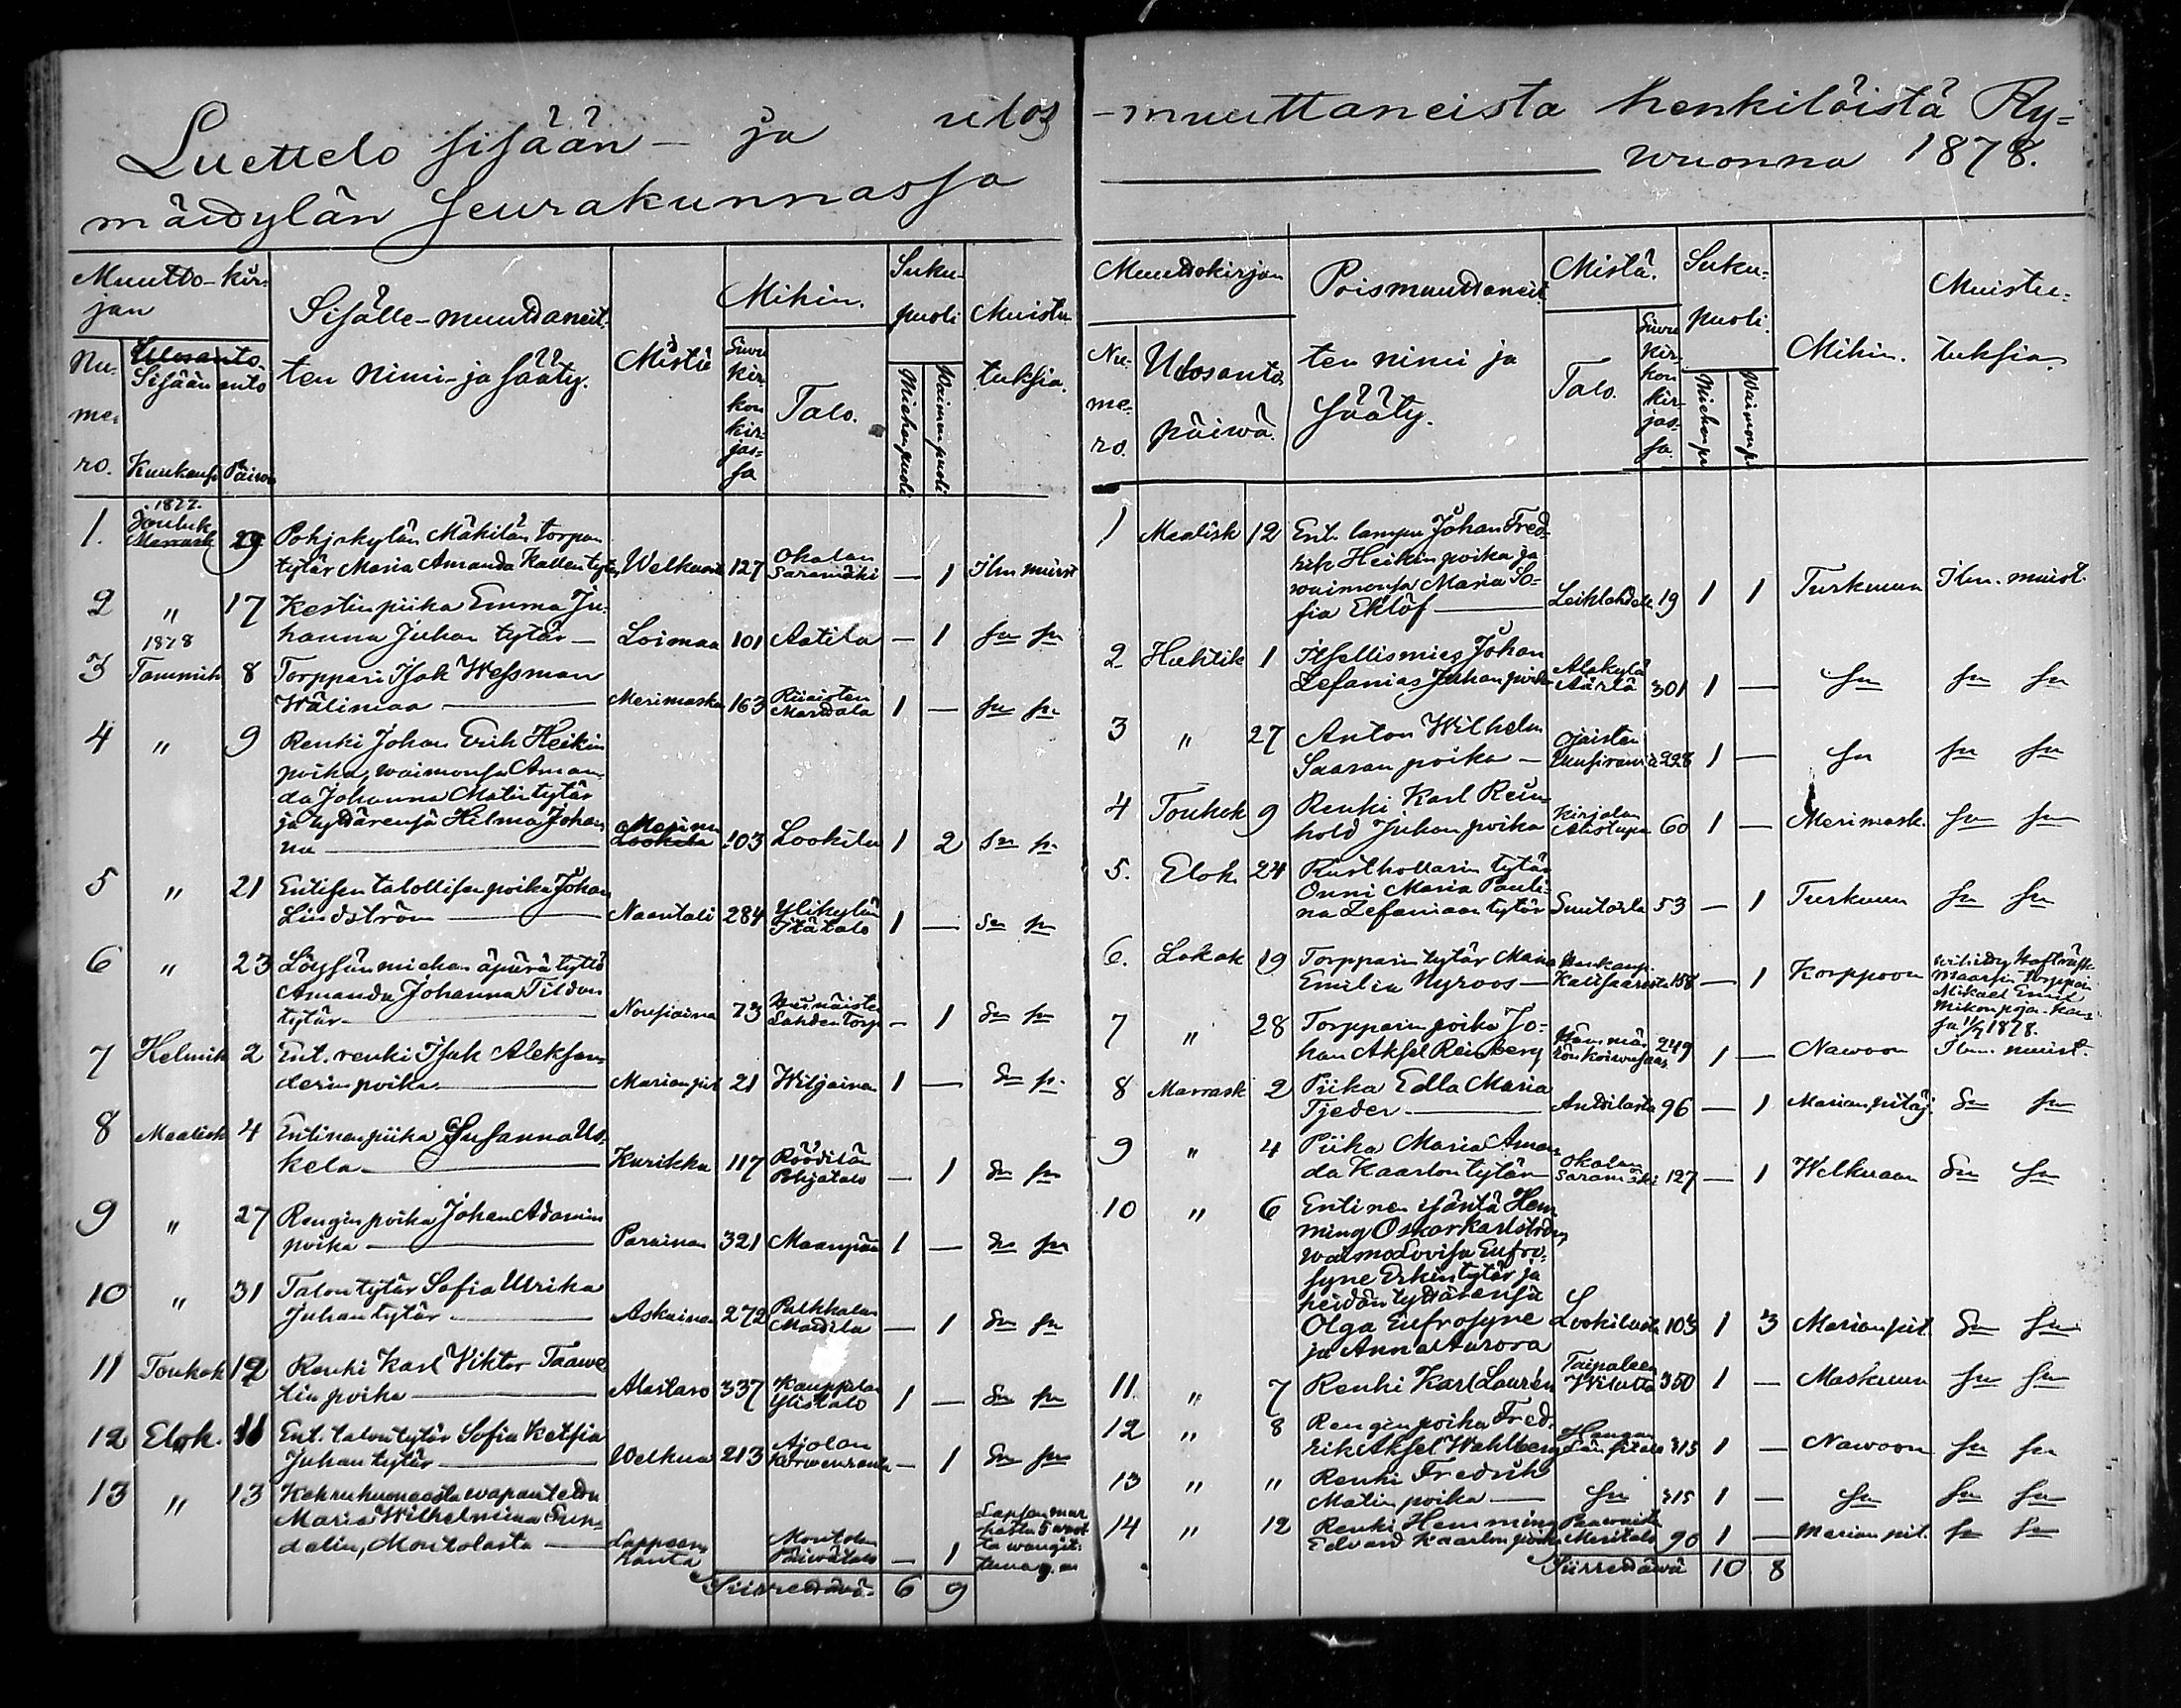 Luettelo sisään- ja ulos
mändylän seurakunnassa
Muutto-kir-
jan
Nu-
me-
ro.
Ulosanto
Sisään anto
Kuukausi Päivä
Sisälle-muuttaneit-
ten nimi- ja sääty.
Mistä
Mihin.
Sivu
kir-
kon
kir-
jas-
sa
Talo.
Suku-
puoli
Miehenpuoli
Waimonpuoli
Muistu-
tuksia.
1877.
1. Jouluk 29 Pohjakylän Mäkilän torpan
Marrask
tytär Maria Amanda Kallen tytär Welkua 127 Okalan Saramäki — 1 Ilm muist
2 " 17 Kestin piika Emma Jo-
hanna Juhan tytär — Loimaa 101 Aatila — 1 sn sn
1878
3 Tammik 8 Torppari Isak Wessman
Wälimaa — Merimasku 163 Riiaisten Mardala 1 — sn sn
4 " 9 Renki Johan Erik Heikin
poika, waimonsa Aman-
da Johanna Matin tytär
ja tyttärensä Helma Johan-
na — Lookila 103 Lookila 1 2 sn sn
5 " 21 Entisen talollisen poika Johan
Lindström — Naantali 284 Ylikylän Itätalo 1 — sn sn
6 " 23 Löysän miehen äpärä tyttö
Amanda Johanna Tildan
tytär — Nousiainen 73 Lahden Torp — 1 sn sn
7 Helmik 2 Ent. renki Isak Aleksan-
derin poika — Marian pit 21 Wiljainen 1 — sn sn
8 Maalisk 4 Entinen piika Susanna Us-
kela — Kurikka 117 Röödilän Pohjatalo — 1 sn sn
9 " 27 Rengin poika Johan Adamin
poika — Parainen 321 Maanpää 1 — sn sn
10 " 31 Talon tytär Sofia Ulrika
Juhan tytär — Askainen 272 Palkkalan Mardila — 1 sn sn
11 Toukok 12 Renki Karl Viktor Taawe-
tin poika — Alastaro 337 Kauppilan Ylistalo 1 — sn sn
12 Elok. 11 Ent. talon tytär Sofia Ketsia
Juhan tytär — Welkua 213 Ajolan Karwenranta — 1 sn sn
13 " 13 Kehruhuoneesta wapautettu
Maria Wilhelmiina Sun-
delin, Montolasta — Lappeen ranta Montolan Päiwätalo — 1
Siirrettäwä 6 9
-muuttaneista henkilöistä Ry-
wuonna 1878.
Muuttokirjan
Nu-
me-
ro.
Ulosanto
päiwä.
Poismuuttaneit-
ten nimi ja
sääty.
Mistä.
Talo.
Siwu
kir-
kon
kir-
jas-
sa.
Suku-
puoli.
Miehenp.
Waimonp.
Mihin.
Muistu-
tuksia.
1 Maalisk 12 Ent. lampu Johan Fred-
rik Heikin poika ja
waimonsa Maria So-
fia Eklöf — Leikluhdelta 19 1 1 Turkuun Ilm. muist.
2 Huhtik 1 Itsellismies Johan
Zefanias Juhan poika Alakylä Äärlä 301 1 — sn sn sn
3 " 27 Anton Wilhelm
Saaran poika — Ojaisten 228 1 — sn sn sn
4 Toukok 9 Renki Karl Rein-
hold Juhan poika Kirjalan Alistupa 60 1 — Merimask. sn sn
5. Elok. 24 Rusthollarin tytär
Onni Maria Pauli-
na Zefaniaan tytär Suutarla 53 — 1 Turkuun sn sn
6. Lokak 19 Torpparin tytär Maria
Emilia Nyroos — Kalisaaresta 158 — 1 Korppoon
Maarsin torppari
Mikael Emil
Mikon pojan kans-
sa 1/9 1878.
7 " 28 Torpparin poika Jo-
han Aksel Reinberg 249 1 — Nawoon Ilm. muist.
8 Marrask 2 Piika Edla Maria
Tjeder — Anttilasta 96 — 1 Marian pitäj. sn sn
9 " 4 Piika Maria Aman-
da Kaarlon tytär — Okalan Saramäki 127 — 1 Welkuaan sn sn
10 " 6 Entinen isäntä Hem-
ming Oskar Karlström,
waimo Lovisa Eufro-
syne Erkin tytär ja
heidän tyttärensä
Olga Eufrosyne
ja Anna Aurora Lookilasta 103 1 3 Marian pit sn sn
11. " 7 Renki Karl Laurén Taipaleen Wilatto 350 1 — Maskuun sn sn
12 " 8 Rengin poika Fred-
rik Aksel Wahlberg 315 1 — Nawoon sn sn
13 " " Renki Fredrik
Matin poika — sn 315 1 — sn sn sn
14 " 12 Renki Hemming
Edvard Kaarlon poika Meritalo 90 1 — Marian pit. sn sn
Siirrettäwä 10 8